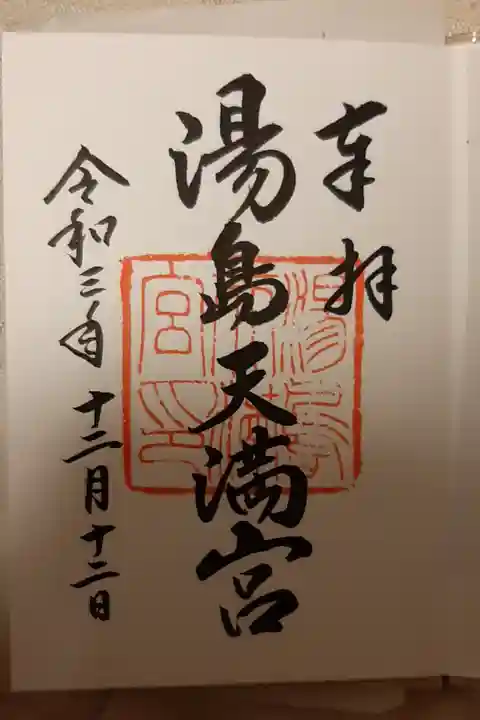 奉拝
湯島天満宮
令和三年十二月十二日
湯島天満宮印